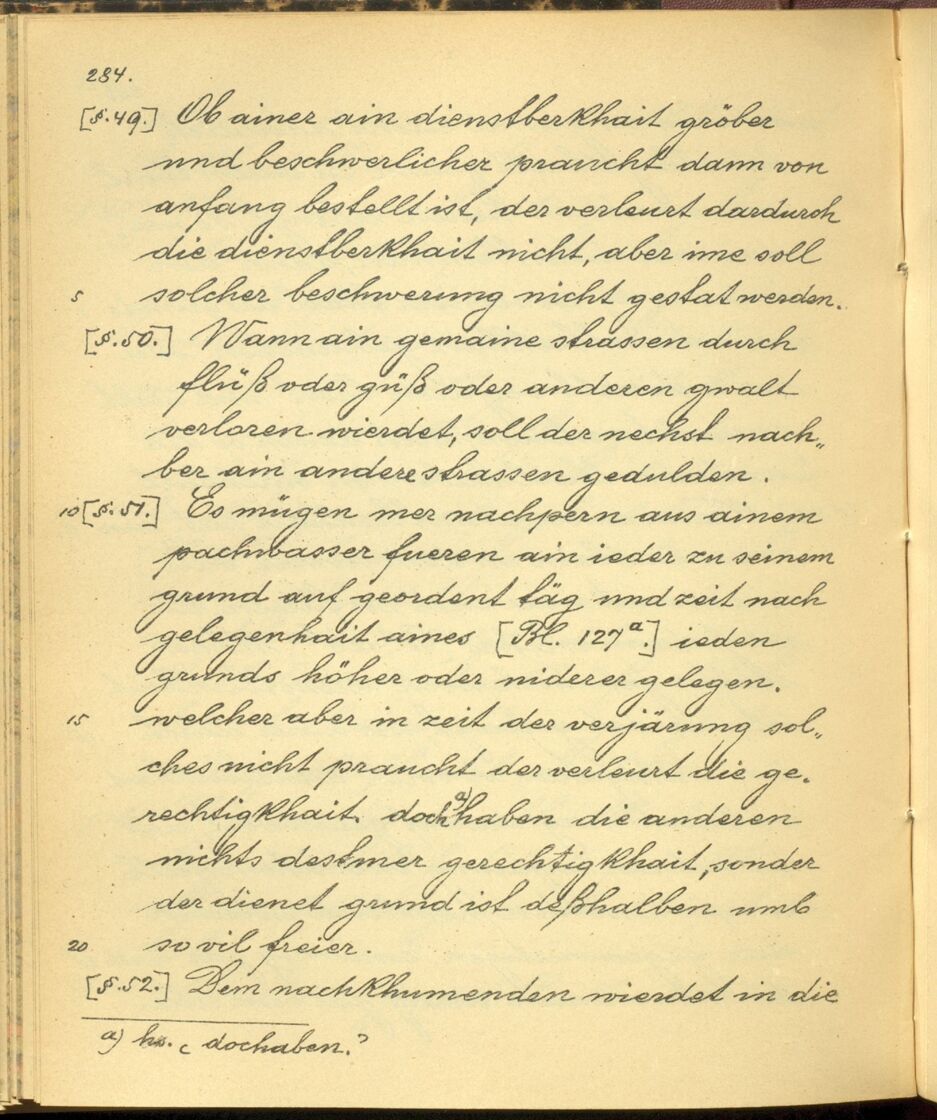 284.
[§.49.] Ob ainer ain dienstberkhait gröber
und beschwerlicher praucht dann von
anfang bestellt ist, der verleurt dardurch
die dienstberkhait nicht, aber ime soll
5 solcher beschwerung nicht gestat werden.
[§.50.] Wann ain gemaine strassen durch
flüß oder güß oder anderen gwalt
verloren wierdet, soll der nechst nach„
ber ain andere strassen gedulden.
10 [§.51.] Es mügen mer nachpern aus ainem
pachwasser fueren ain ieder zu seinem
grund auf geordent täg und zeit nach
gelegenhait aines [Bl. 127a.] ieden
grunds höher oder niderer gelegen.
15 welcher aber in zeit der verjärung sol„
ches nicht praucht der verleurt die ge„
rechtigkhait. doch a) haben die anderen
nichts destmer gerechtigkhait, sonder
der dienet grund ist deßhalben umb
20 so vil freier.
[§.52.] Dem nachkhumenden wierdet in die
a) hs. c dochaben.?